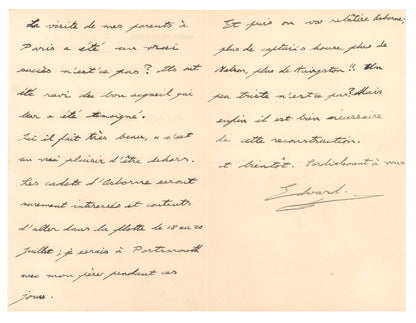 La visite de mes parents à
Paris a été un vrai
succès n'est-ce pas? Ils ont
été ravis du bon accueil qui
leur a été temoigné.
Ici il fait très beau, & c'est
un vrai plaisir d'être dehors.
Les cadets d'Osborne seront
surement intéressés et contents
d'aller dans la flotte le 18 au 20
Juillet; je serais à Portsmouth
avec mon père pendant ces
jours.
Et puis on va refaire Osborne;
plus de captain's house, plus de
Nelson, plus de Kingston!! Un
peu triste n'est-ce pas? Mais
enfin il est bien nécessaire
de cette reconstruction.
à bientôt. Cordialement à vous
Edward.